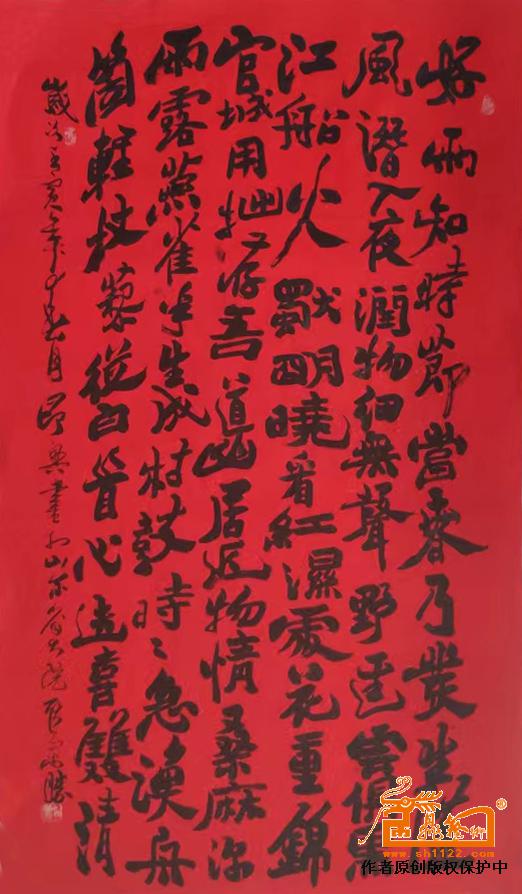 好雨知時節當春乃發生
風潛入夜潤物細無聲野徑雲俱
江船火獨明曉看紅濕處花重錦
官城用拙存吾道幽居近物情桑麻深
雨露燕雀半生成村鼓時〻急漁舟
箇輕杖藜從白首心迹喜雙清
歲次壬寅年春月即興書於山东省大院
www.sh1122.com
作者原创版权保护中